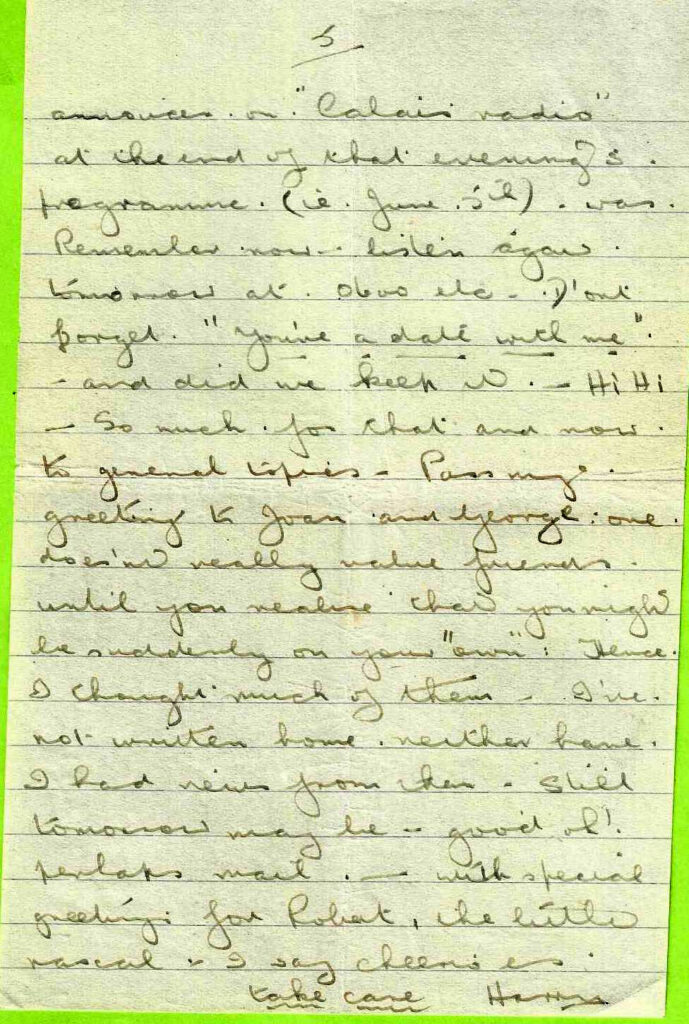 5
announces on "Calais radio"
at the end of that evening's.
programme. (ie. June. 5th). was.
Remember now - listen again.
tomorrow at. 0600 etc - D'ont
forget. "You've a date with me".
- and did we keep it. - Hi Hi
- So much. for that and now.
to general topics - Pass my.
greeting to Joan and George: one.
does'nt really value friends.
until you realise that you might
be suddenly on your "own": Hence.
I thought much of them - I've.
not written home. neither have.
I had news from - Still
tomorrow may be - good ol'.
perhaps mail. - with special
greetings for Robert, the little
rascal - I say cheerio
take care Harry